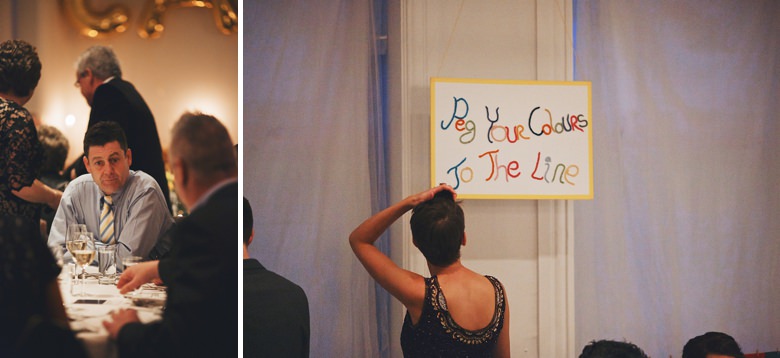 Peg Your Colours
To The Line